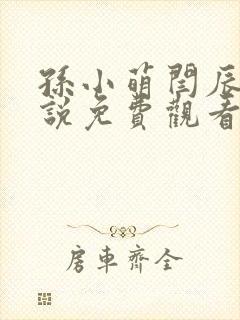 孫小萌閆辰
說免費觀看
房車齊全